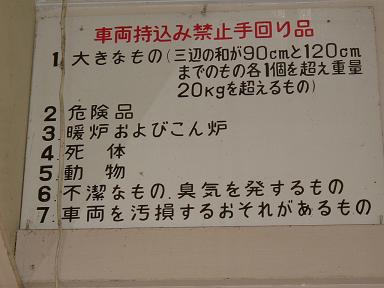 車両持込み禁止手回り品
1 大きなもの(三辺の和が90cmと120cm
までのもの各1個を超え重量
20kgを超えるもの)
2 危険品
3 暖炉およびこん炉
4 死体
5 動物
6 不潔なもの、臭気を発するもの
7 車両を汚損するおそれがあるもの